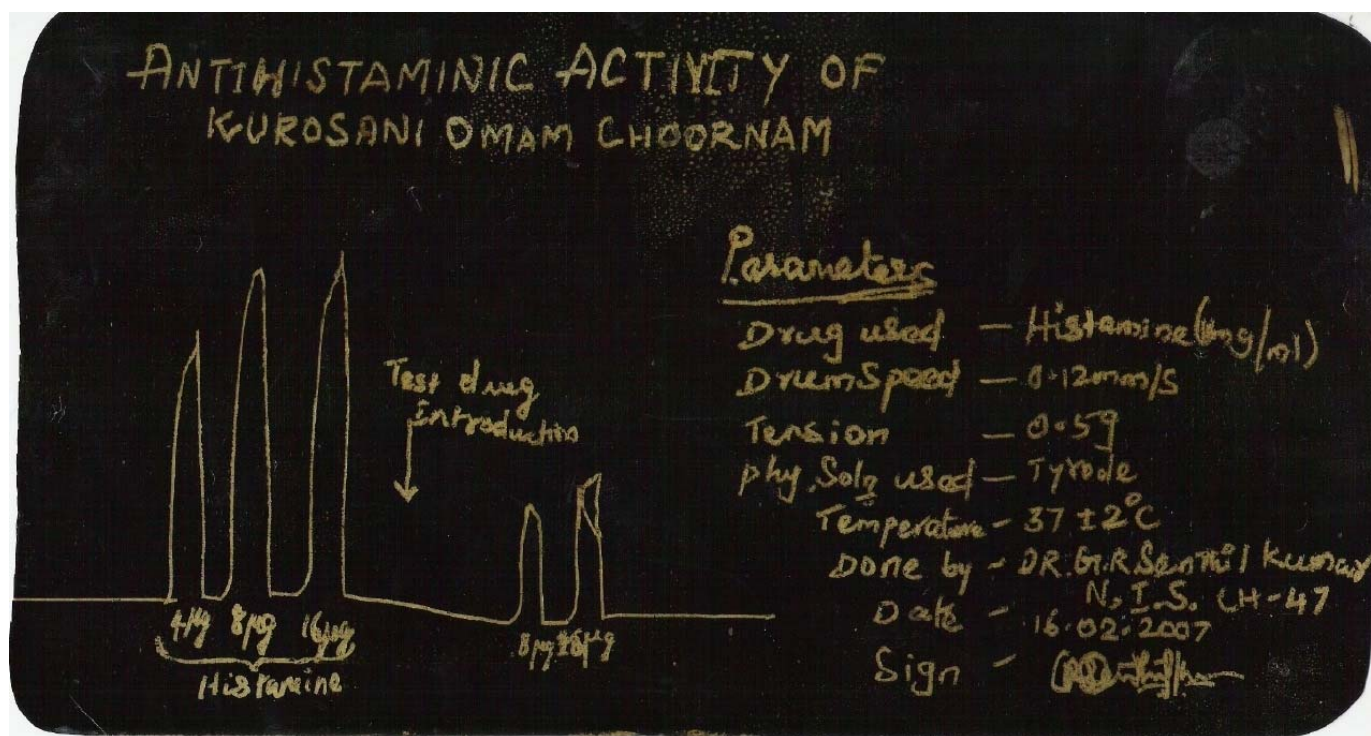 ANTIHISTAMINIC ACTIVITY OF
KUROSANI OMAM CHOORNAM
Test drug
Introduction
4μg 8μg 16μg
Histamine
8μg 16μg
Parameters
Drug used - Histamine (mg/ml)
Drum Speed - 0.12mm/s
Tension - 0.5g
Phy. Soln used - Tyrode
Temperature - 37 ± 2°C
Done by - DR.G.R.Senthil Kumar
N.I.S. CH-47
Date - 16.02.2007
Sign -